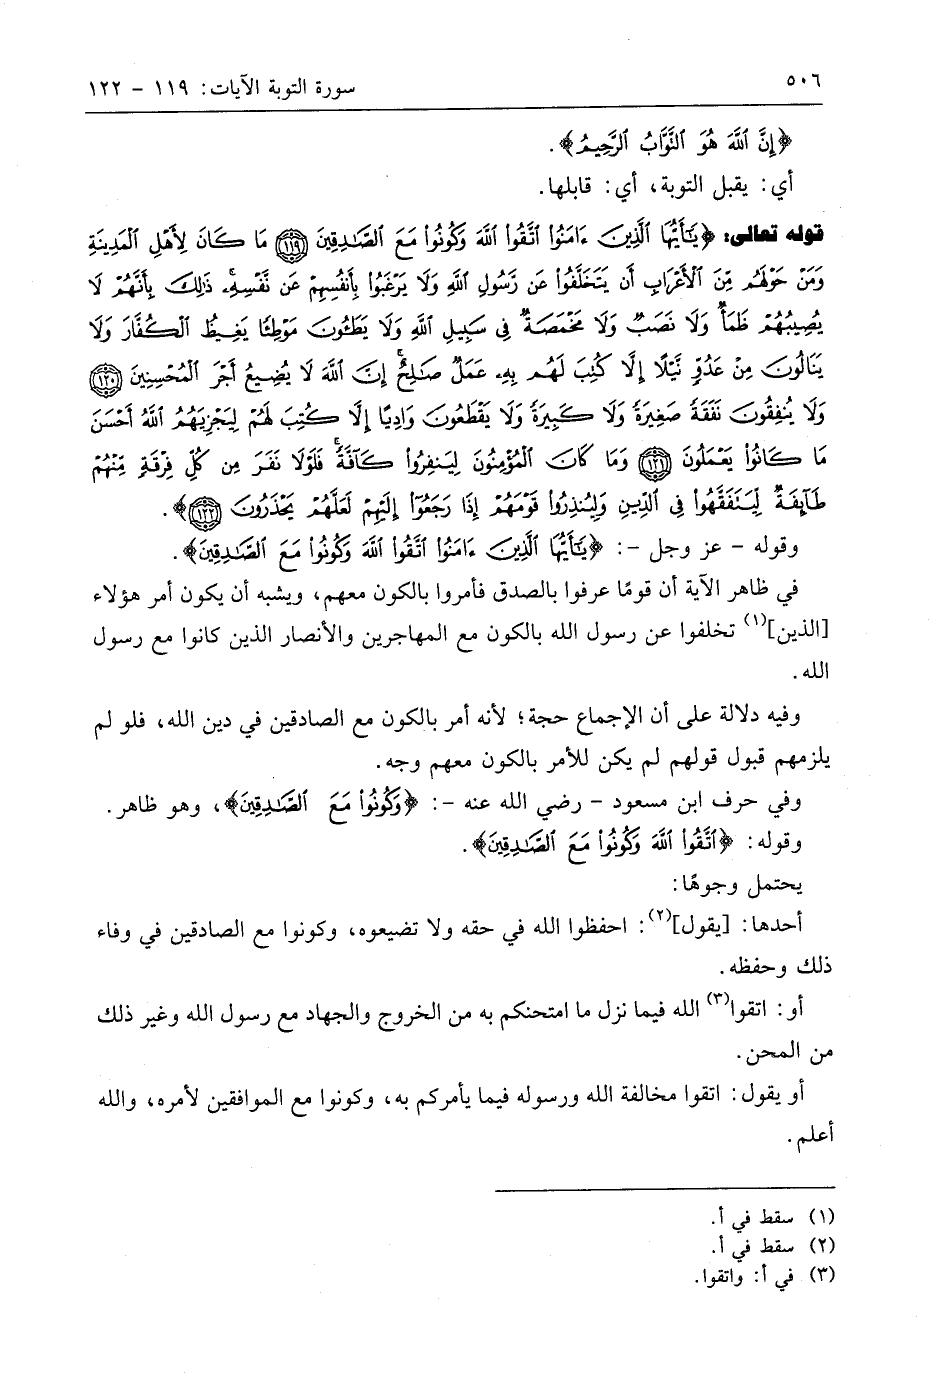 ٥٠٦
سورة التوبة الآيات: ١١٩ - ١٢٢
﴿إِنَّ ٱللَّهَ هُوَ ٱلتَّوَّابُ ٱلرَّحِيمُ﴾.
أي: يقبل التوبة، أي: قابلها.
قوله تعالى: ﴿يَٰٓأَيُّهَا ٱلَّذِينَ ءَامَنُوا۟ ٱتَّقُوا۟ ٱللَّهَ وَكُونُوا۟ مَعَ ٱلصَّٰدِقِينَ ١١٩ مَا كَانَ لِأَهْلِ ٱلْمَدِينَةِ
وَمَنْ حَوْلَهُم مِّنَ ٱلْأَعْرَابِ أَن يَتَخَلَّفُوا۟ عَن رَّسُولِ ٱللَّهِ وَلَا يَرْغَبُوا۟ بِأَنفُسِهِمْ عَن نَّفْسِهِۦ ۚ ذَٰلِكَ بِأَنَّهُمْ لَا
يُصِيبُهُمْ ظَمَأٌ وَلَا نَصَبٌ وَلَا مَخْمَصَةٌ فِى سَبِيلِ ٱللَّهِ وَلَا يَطَـُٔونَ مَوْطِئًا يَغِيظُ ٱلْكُفَّارَ وَلَا
يَنَالُونَ مِنْ عَدُوٍّ نَّيْلًا إِلَّا كُتِبَ لَهُم بِهِۦ عَمَلٌ صَٰلِحٌ ۚ إِنَّ ٱللَّهَ لَا يُضِيعُ أَجْرَ ٱلْمُحْسِنِينَ ١٢٠
وَلَا يُنفِقُونَ نَفَقَةً صَغِيرَةً وَلَا كَبِيرَةً وَلَا يَقْطَعُونَ وَادِيًا إِلَّا كُتِبَ لَهُمْ لِيَجْزِيَهُمُ ٱللَّهُ أَحْسَنَ
مَا كَانُوا۟ يَعْمَلُونَ ١٢١ وَمَا كَانَ ٱلْمُؤْمِنُونَ لِيَنفِرُوا۟ كَآفَّةً ۚ فَلَوْلَا نَفَرَ مِن كُلِّ فِرْقَةٍ مِّنْهُمْ
طَآئِفَةٌ لِّيَتَفَقَّهُوا۟ فِى ٱلدِّينِ وَلِيُنذِرُوا۟ قَوْمَهُمْ إِذَا رَجَعُوٓا۟ إِلَيْهِمْ لَعَلَّهُمْ يَحْذَرُونَ ١٢٢﴾.
وقوله - عز وجل -: ﴿يَٰٓأَيُّهَا ٱلَّذِينَ ءَامَنُوا۟ ٱتَّقُوا۟ ٱللَّهَ وَكُونُوا۟ مَعَ ٱلصَّٰدِقِينَ﴾.
في ظاهر الآية أن قومًا عرفوا بالصدق فأمروا بالكون معهم، ويشبه أن يكون أمر هؤلاء
[الذين](١) تخلفوا عن رسول الله بالكون مع المهاجرين والأنصار الذين كانوا مع رسول
الله.
وفيه دلالة على أن الإجماع حجة؛ لأنه أمر بالكون مع الصادقين في دين الله، فلو لم
يلزمهم قبول قولهم لم يكن للأمر بالكون معهم وجه.
وفي حرف ابن مسعود - رضي الله عنه -: ﴿وَكُونُوا۟ مَعَ ٱلصَّٰدِقِينَ﴾، وهو ظاهر.
وقوله: ﴿ٱتَّقُوا۟ ٱللَّهَ وَكُونُوا۟ مَعَ ٱلصَّٰدِقِينَ﴾.
يحتمل وجوهًا:
أحدها: [يقول](٢): احفظوا الله في حقه ولا تضيعوه، وكونوا مع الصادقين في وفاء
ذلك وحفظه.
أو: اتقوا(٣) الله فيما نزل ما امتحنكم به من الخروج والجهاد مع رسول الله وغير ذلك
من المحن.
أو يقول: اتقوا مخالفة الله ورسوله فيما يأمركم به، وكونوا مع الموافقين لأمره، والله
أعلم.
(١) سقط في أ.
(٢) سقط في أ.
(٣) في أ: واتقوا.